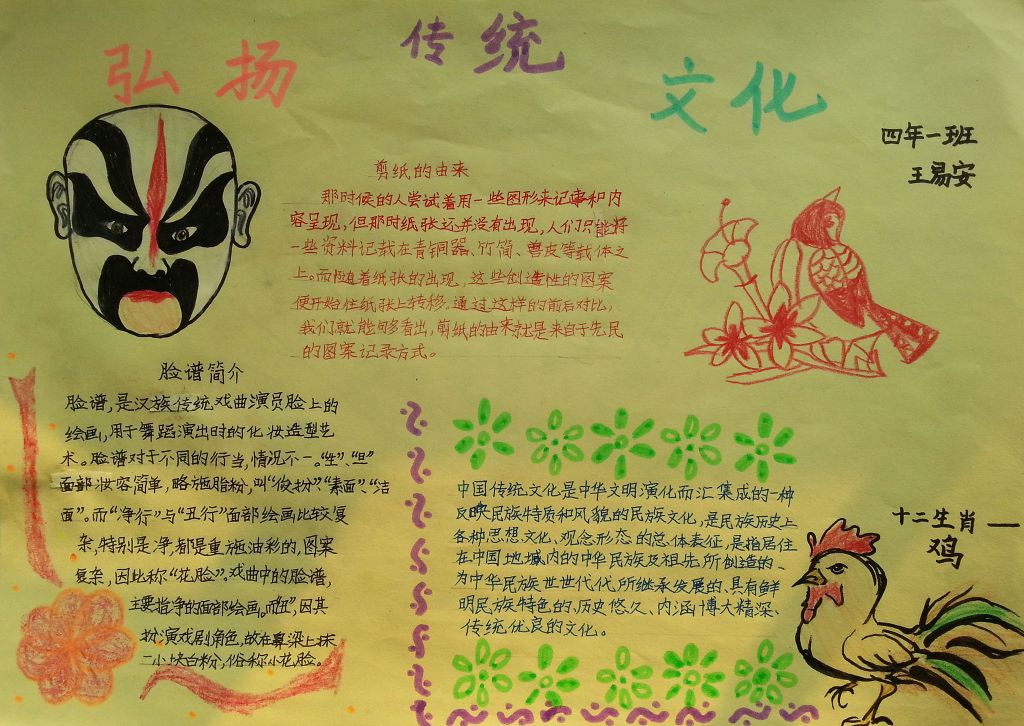 弘扬
传统
文化
四年一班
王易安
剪纸的由来
那时候的人尝试着用一些图形来记事和内
容呈现，但那时纸张还并没有出现，人们只能将
一些资料记载在青铜器、竹简、兽皮等载体之
上。而随着纸张的出现，这些创造性的图案
便开始往纸张上转移。通过这样的前后对比，
我们就能够看出，剪纸的由来就是来自于先民
的图案记录方式。
脸谱简介
脸谱，是汉族传统戏曲演员脸上的
绘画，用于舞蹈演出时的化妆造型艺
术。脸谱对于不同的行当，情况不一。“生”、“旦”
面部妆容简单，略施脂粉，叫“俊扮”、“素面”、“洁
面”。而“净行”与“丑行”面部绘画比较复
杂，特别是净，都是重施油彩的，图案
复杂，因此称“花脸”。戏曲中的脸谱，
主要指净的面部绘画。而“丑”，因其
扮演戏剧角色，故在鼻梁上抹
一小块白粉，俗称小花脸。
中国传统文化是中华文明演化而汇集成的一种
反映民族特质和风貌的民族文化，是民族历史上
各种思想文化、观念形态的总体表征，是指居住
在中国地域内的中华民族及祖先所创造的、
为中华民族世世代代所继承发展的、具有鲜
明民族特色的、历史悠久、内涵博大精深、
传统优良的文化。
十二生肖—
鸡